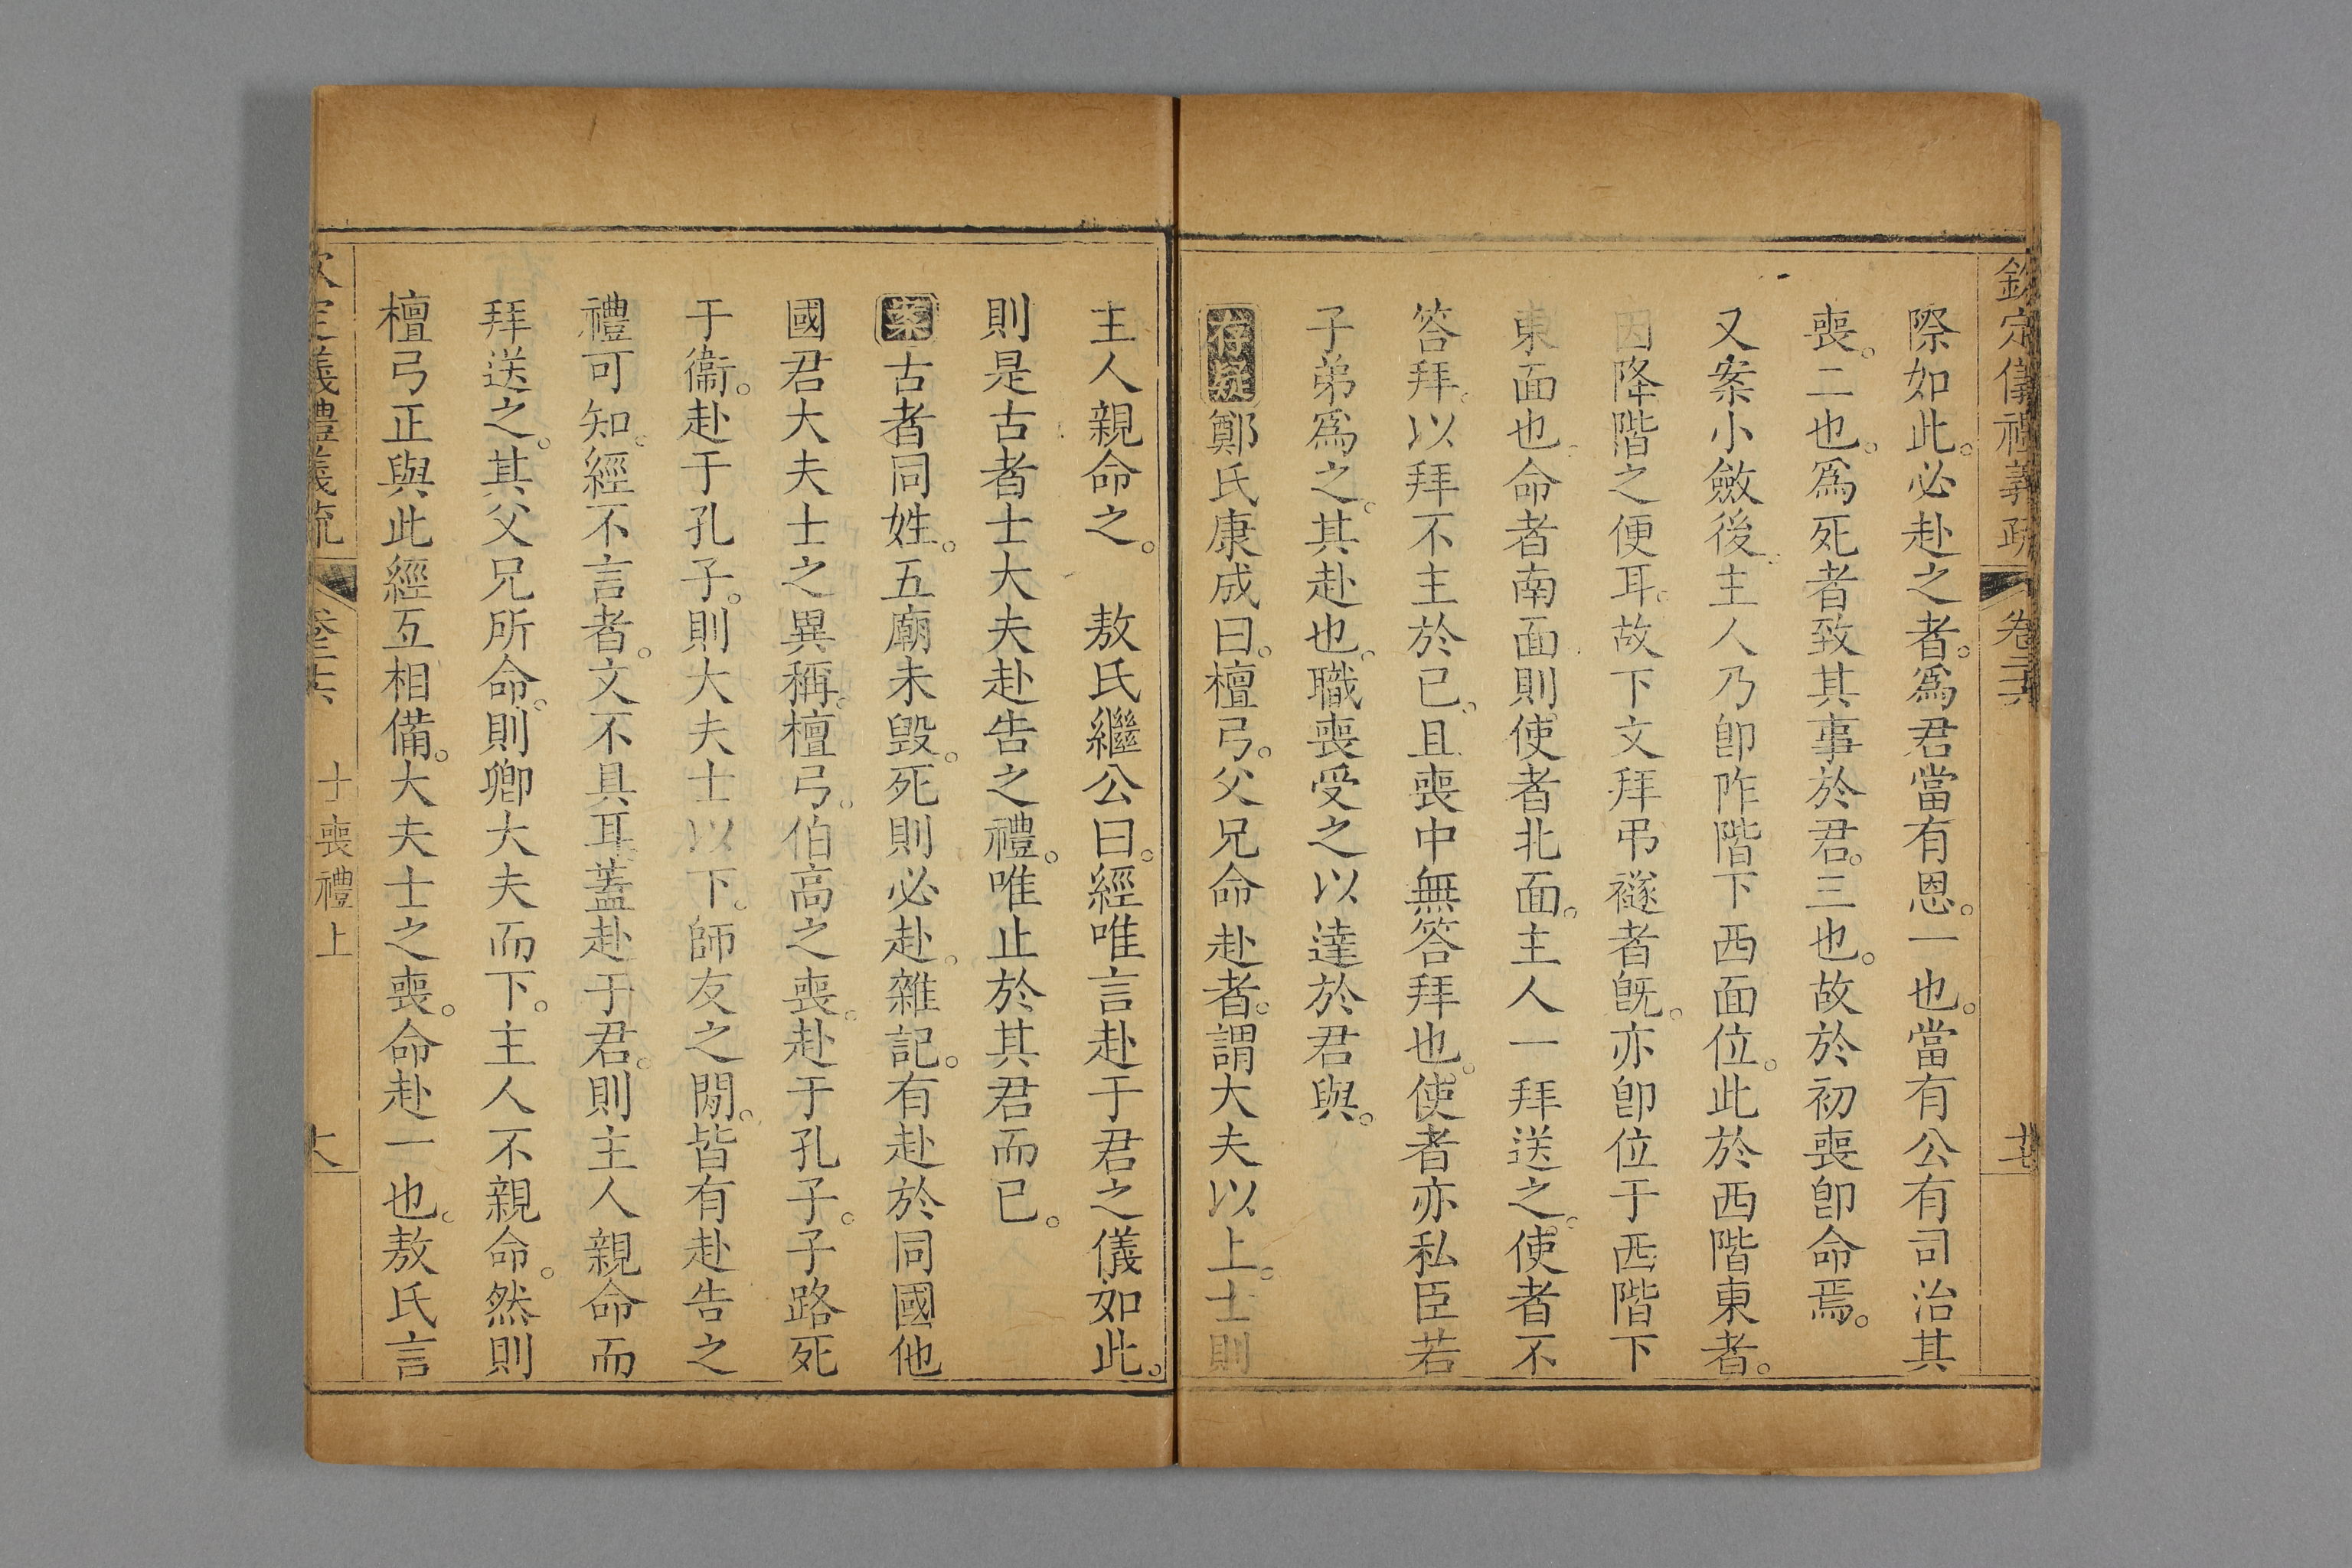 欽定儀禮義疏 卷二十六
際如此。必赴之者。爲君當有恩。一也。當有公有司治其
喪。二也。爲死者致其事於君。三也。故於初喪卽命焉。
又案小斂後。主人乃卽阼階下西面位。此於西階東者。
因降階之便耳。故下文拜弔襚者旣。亦卽位于西階下
東面也。命者南面則使者北面。主人一拜送之。使者不
答拜。以拜不主於已。且喪中無答拜也。使者亦私臣若
子弟爲之。其赴也。職喪受之以達於君與。
存疑鄭氏康成曰。檀弓。父兄命赴者。謂大夫以上。士則
主人親命之。 敖氏繼公曰。經唯言赴于君之儀如此。
則是古者士大夫赴告之禮。唯止於其君而已。
案古者同姓。五廟未毀。死則必赴。雜記。有赴於同國他
國君大夫士之異稱。檀弓。伯高之喪。赴于孔子。子路死
于衞。赴于孔子。則大夫士以下。師友之閒。皆有赴告之
禮可知。經不言者。文不具耳。蓋赴于君。則主人親命而
拜送之。其父兄所命。則卿大夫而下。主人不親命。然則
檀弓正與此經互相備。大夫士之喪。命赴一也。敖氏言
欽定儀禮義疏 卷二十六 士喪禮上